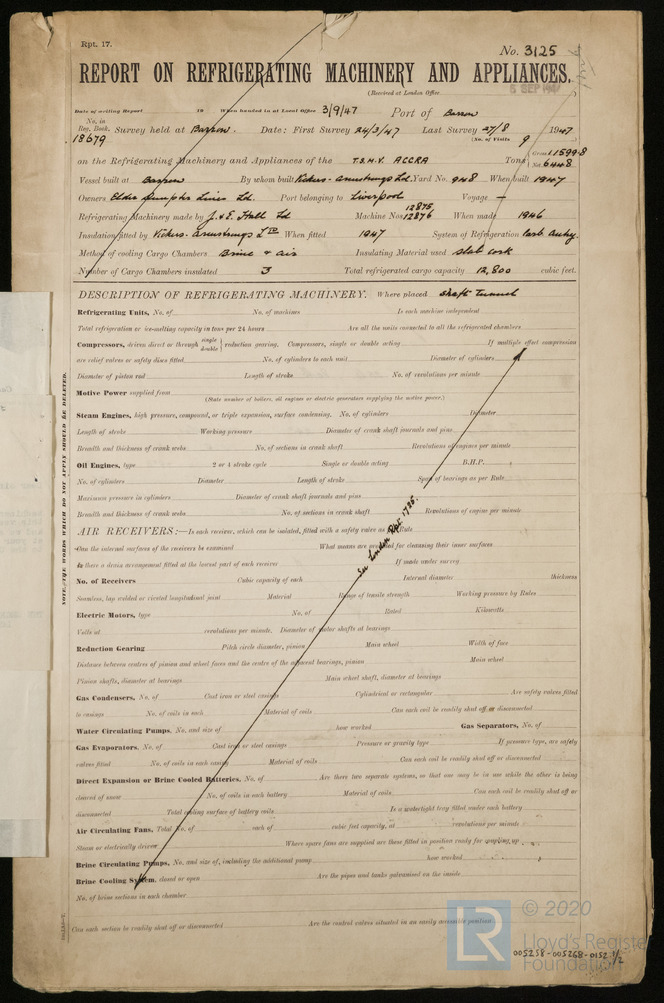 Rpt. 17.
No. 3125
REPORT ON REFRIGERATING MACHINERY AND APPLIANCES.
(Received at London Office 5 SEP 1947
Date of writing Report 19 When handed in at Local Office 3/9/47 Port of Barrow
No. in Reg. Book. Survey held at Barrow. Date: First Survey 24/3/47 Last Survey 27/8 1947
18679 (No. of Visits 9
on the Refrigerating Machinery and Appliances of the T.S.M.V. ACCRA Tons Gross 11599.8 Net 6448
Vessel built at Barrow By whom built Vickers-Armstrongs Ld. Yard No. 948 When built 1947
Owners Elder Dempster Lines Ld. Port belonging to Liverpool Voyage —
Refrigerating Machinery made by J. & E. Hall Ld Machine Nos. 12875, 12876 When made 1946
Insulation fitted by Vickers-Armstrongs Ltd When fitted 1947 System of Refrigeration Carb. Anhy.
Method of cooling Cargo Chambers Brine & air Insulating Material used slab cork
Number of Cargo Chambers insulated 3 Total refrigerated cargo capacity 12,800 cubic feet.
DESCRIPTION OF REFRIGERATING MACHINERY. Where placed shaft tunnel
Refrigerating Units, No. of No. of machines Is each machine independent
Total refrigeration or ice-melting capacity in tons per 24 hours Are all the units connected to all the refrigerated chambers
Compressors, driven direct or through single double reduction gearing. Compressors, single or double acting If multiple effect compression
are relief valves or safety discs fitted No. of cylinders to each unit Diameter of cylinders
Diameter of piston rod Length of stroke No. of revolutions per minute
Motive Power supplied from
(State number of boilers, oil engines or electric generators supplying the motive power.)
Steam Engines, high pressure, compound, or triple expansion, surface condensing. No. of cylinders Diameter
Length of stroke Working pressure Diameter of crank shaft journals and pins
Breadth and thickness of crank webs No. of sections in crank shaft Revolutions of engines per minute
Oil Engines, type 2 or 4 stroke cycle Single or double acting B.H.P.
No. of cylinders Diameter Length of stroke Span of bearings as per Rule
Maximum pressure in cylinders Diameter of crank shaft journals and pins
Breadth and thickness of crank webs No. of sections in crank shaft Revolutions of engine per minute
AIR RECEIVERS:—Is each receiver, which can be isolated, fitted with a safety valve as per Rule
Can the internal surfaces of the receivers be examined What means are provided for cleansing their inner surfaces
Is there a drain arrangement fitted at the lowest part of each receiver If made under survey
No. of Receivers Cubic capacity of each Internal diameter thickness
Seamless, lap welded or riveted longitudinal joint Material Range of tensile strength Working pressure by Rules
Electric Motors, type No. of Rated Kilowatts
Volts at revolutions per minute. Diameter of motor shafts at bearings
Reduction Gearing Pitch circle diameter, pinion Main wheel Width of face
Distance between centres of pinion and wheel faces and the centre of the adjacent bearings, pinion Main wheel
Pinion shafts, diameter at bearings Main wheel shaft, diameter at bearings
Gas Condensers, No. of Cast iron or steel casings Cylindrical or rectangular Are safety valves fitted
to casings No. of coils in each Material of coils Can each coil be readily shut off or disconnected
Water Circulating Pumps, No. and size of how worked Gas Separators, No. of
Gas Evaporators, No. of Cast iron or steel casings Pressure or gravity type If pressure type, are safety
valves fitted No. of coils in each casing Material of coils Can each coil be readily shut off or disconnected
Direct Expansion or Brine Cooled Batteries, No. of Are there two separate systems, so that one may be in use while the other is being
cleared of snow No. of coils in each battery Material of coils Can each coil be readily shut off or
disconnected Total cooling surface of battery coils Is a watertight tray fitted under each battery
Air Circulating Fans, Total No. of each of cubic feet capacity, at revolutions per minute
Steam or electrically driven Where spare fans are supplied are these fitted in position ready for coupling up
Brine Circulating Pumps, No. and size of, including the additional pump how worked
Brine Cooling System, closed or open Are the pipes and tanks galvanised on the inside
No. of brine sections in each chamber
Can each section be readily shut off or disconnected Are the control valves situated in an easily accessible position
See London Rpt. 1725.
NOTE.—THE WORDS WHICH DO NOT APPLY SHOULD BE DELETED.
LR
© 2020
Lloyd's Register
Foundation
005258-005268-0152 1/2